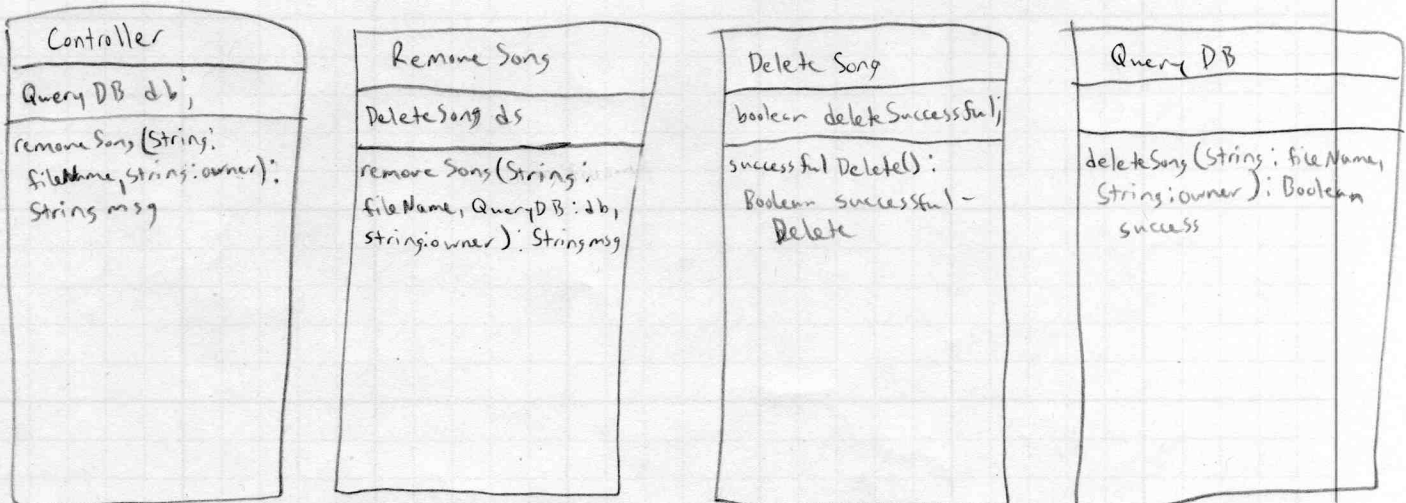 Controller
Query DB db;
removeSong(String:
fileName, string:owner):
String msg
Remove Song
DeleteSong ds
remove Song(String:
fileName, QueryDB:db,
string:owner): String msg
Delete Song
boolean deleteSuccessful;
successfulDelete():
Boolean successful-
Delete
Query DB
deleteSong(String: fileName,
String:owner): Boolean
success